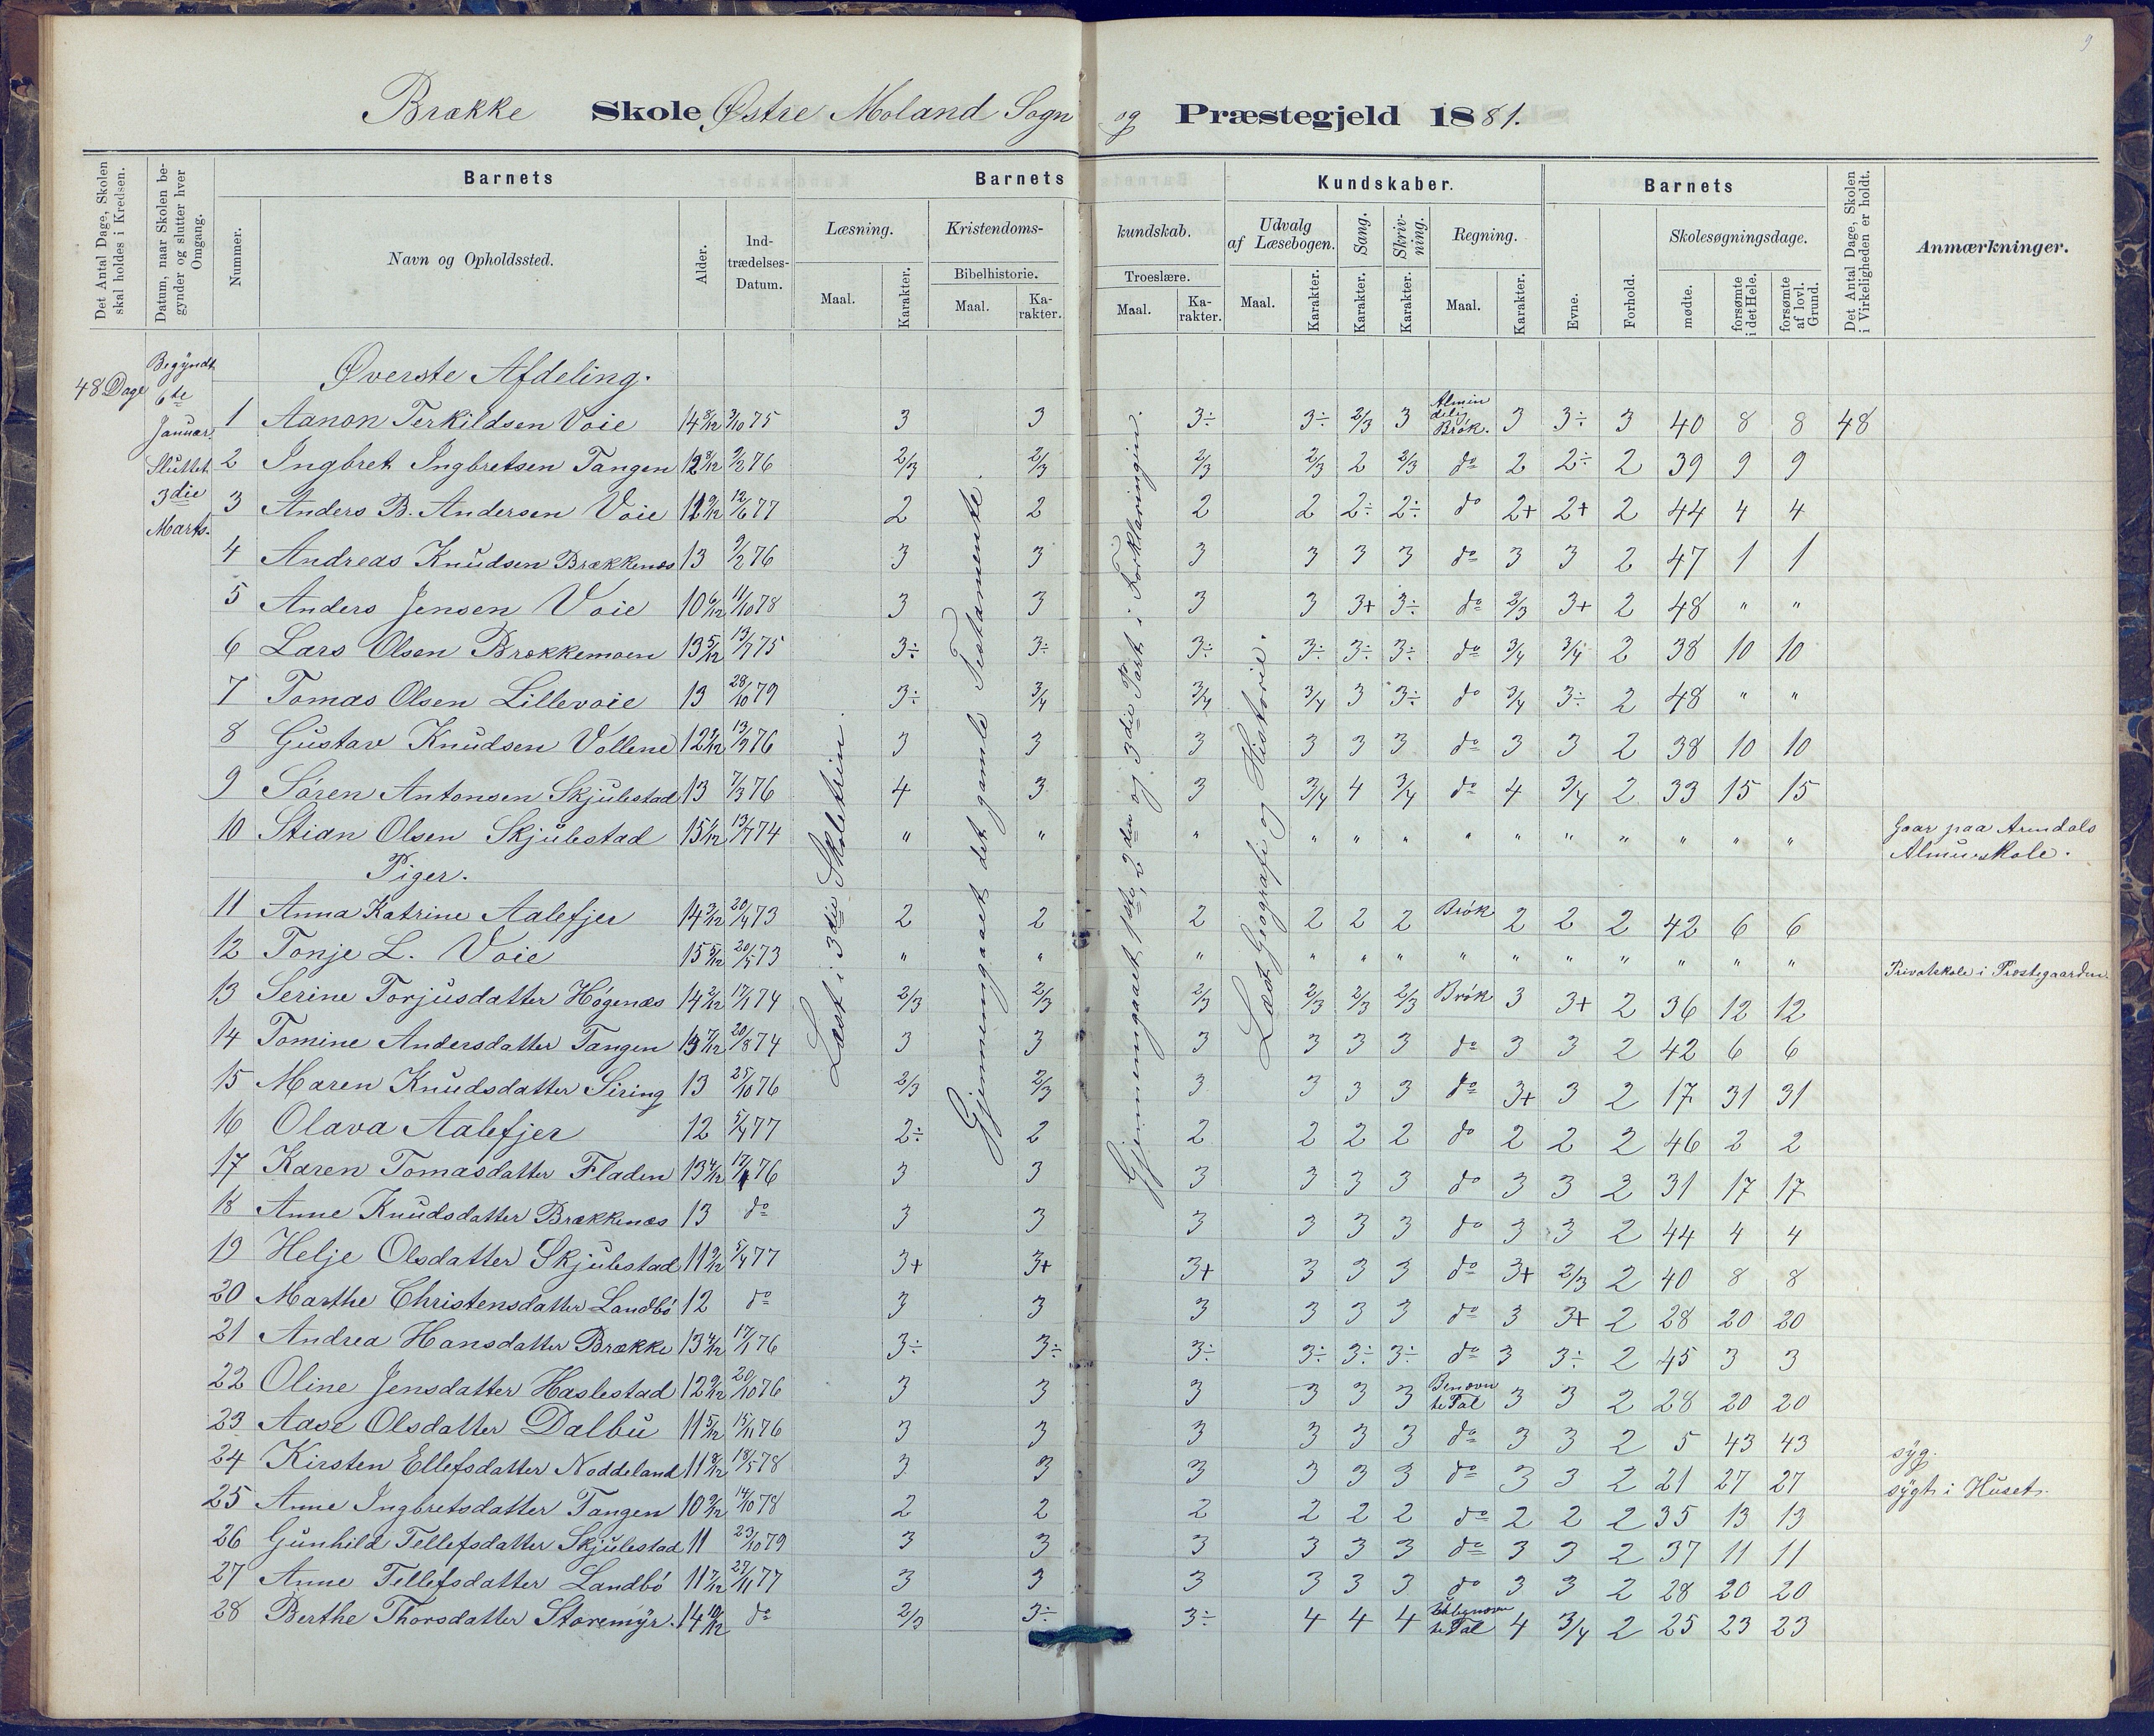 9
Brække Skole Østre Moland Sogn og Præstegjeld 1881.
Det Antal Dage, Skolen skal holdes i Kredsen.
Datum, naar Skolen begynder og slutter hver Omgang.
Barnets
Nummer.
Navn og Opholdssted.
Alder.
Indtrædelses-Datum.
Barnets Kundskaber.
Læsning.
Maal.
Karakter.
Kristendomskundskab.
Bibelhistorie.
Maal.
Karakter.
Troeslære.
Maal.
Karakter.
Udvalg af Læsebogen.
Maal.
Karakter.
Sang.
Karakter.
Skrivning.
Karakter.
Regning.
Maal.
Karakter.
Barnets
Evne.
Forhold.
Skolesøgningsdage.
mødte.
forsømte i det Hele.
forsømte af lovl. Grund.
Det Antal Dage, Skolen i Virkeligheden er holdt.
Anmærkninger.
48 Dage
Begyndt
6te
Januar.
Sluttet
3die
Marts.
Læst i 3die Skoletrin.
Gjennemgaaet det gamle Testamente.
Gjennemgaaet 1ste, 2den og 3die Part i Forklaringen.
Læst Geografi og Historie.
Øverste Afdeling.
1 Aanon Terkildsen Voie 14 8/12 3/10 75 3 3 3÷ 3÷ 2/3 3 Almindelig Brøk. 3 3÷ 3 40 8 8 48
2 Ingbret Ingbretsen Tangen 12 8/12 9/2 76 2/3 2/3 2/3 2/3 2 2/3 do 2 2÷ 2 39 9 9
3 Anders B. Andersen Voie 12 9/12 12/6 77 2 2 2 2 2÷ 2÷ do 2+ 2+ 2 44 4 4
4 Andreas Knudsen Brækkenes 13 9/2 76 3 3 3 3 3 3 do 3 3 2 47 1 1
5 Anders Jensen Voie 10 6/12 11/10 78 3 3 3 3 3+ 3÷ do 2/3 3+ 2 48 " "
6 Lars Olsen Brækkemoen 13 5/12 13/7 75 3÷ 3÷ 3÷ 3÷ 3÷ 3÷ do 3/4 3/4 2 38 10 10
7 Tomas Olsen Lillevoie 13 28/10 79 3÷ 3/4 3/4 3/4 3 3÷ do 3/4 3÷ 2 48 " "
8 Gustav Knudsen Vollene 12 2/12 13/3 76 3 3 3 3 3 3 do 3 3 2 38 10 10
9 Søren Antonsen Skjulestad 13 7/3 76 4 3 3 3/4 4 3/4 do 4 3/4 2 33 15 15
10 Stian Olsen Skjulestad 15 1/12 13/7 74 " " " " " " " " " " " " " Gaar paa Arendals Almueskole.
Piger.
11 Anna Katrine Aalefjer 14 3/12 20/4 73 2 2 2 2 2 2 Brøk 2 2 2 42 6 6
12 Tonje L. Voie 15 5/12 20/5 73 " " " " " " " " " " " " " Privatskole i Prestegaarden
13 Serine Torjusdatter Høgenæs 14 2/12 17/1 74 2/3 2/3 2/3 2/3 2/3 2/3 Brøk 3 3+ 2 36 12 12
14 Tomine Andersdatter Tangen 13 7/12 20/8 74 3 3 3 3 3 3 do 3 3 2 42 6 6
15 Maren Knudsdatter Siring 13 25/10 76 2/3 2/3 3 3 3 3 do 3+ 3 2 17 31 31
16 Olava Aalefjer 12 5/4 77 2÷ 2 2 2 2 2 do 2 2 2 46 2 2
17 Karen Tomasdatter Fladen 13 4/12 17/1 76 3 3 3 3 3 3 do 3 3 2 31 17 17
18 Anne Knudsdatter Brækkenes 13 do 3 3 3 3 3 3 do 3 3 2 44 4 4
19 Helje Olsdatter Skjulestad 11 9/12 5/4 77 3+ 3+ 3+ 3 3 3 do 3+ 2/3 2 40 8 8
20 Marthe Christensdatter Landbø 12 do 3 3 3 3 3 3 do 3 3+ 2 28 20 20
21 Andrea Hansdatter Brække 13 4/12 17/1 76 3÷ 3÷ 3÷ 3÷ 3÷ 3÷ do 3 3÷ 2 45 3 3
22 Oline Jensdatter Haslestad 12 9/12 20/10 76 3 3 3 3 3 3 Benævnte Tal 3 3 2 28 20 20
23 Aase Olsdatter Dalbu 11 5/12 15/11 76 3 3 3 3 3 3 do 3 3 2 5 43 43 syg.
24 Kirsten Ellefsdatter Noddeland 11 8/12 18/5 78 3 3 3 3 3 3 do 3 3 2 21 27 27 sygt i Huset.
25 Anne Ingbretsdatter Tangen 10 9/12 14/10 78 2 2 2 2 2 2 do 2 2 2 35 13 13
26 Gunhild Tellefsdatter Skjulestad 11 23/10 79 3 3 3 3 3 3 do 3 3 2 37 11 11
27 Anne Tellefsdatter Landbø 11 7/12 27/11 77 3 3 3 3 3 3 do 3 3 2 28 20 20
28 Berthe Thorsdatter Storemyr. 14 10/12 do 2/3 3÷ 3÷ 4 4 4 Ubenævnte Tal 4 3/4 2 25 23 23